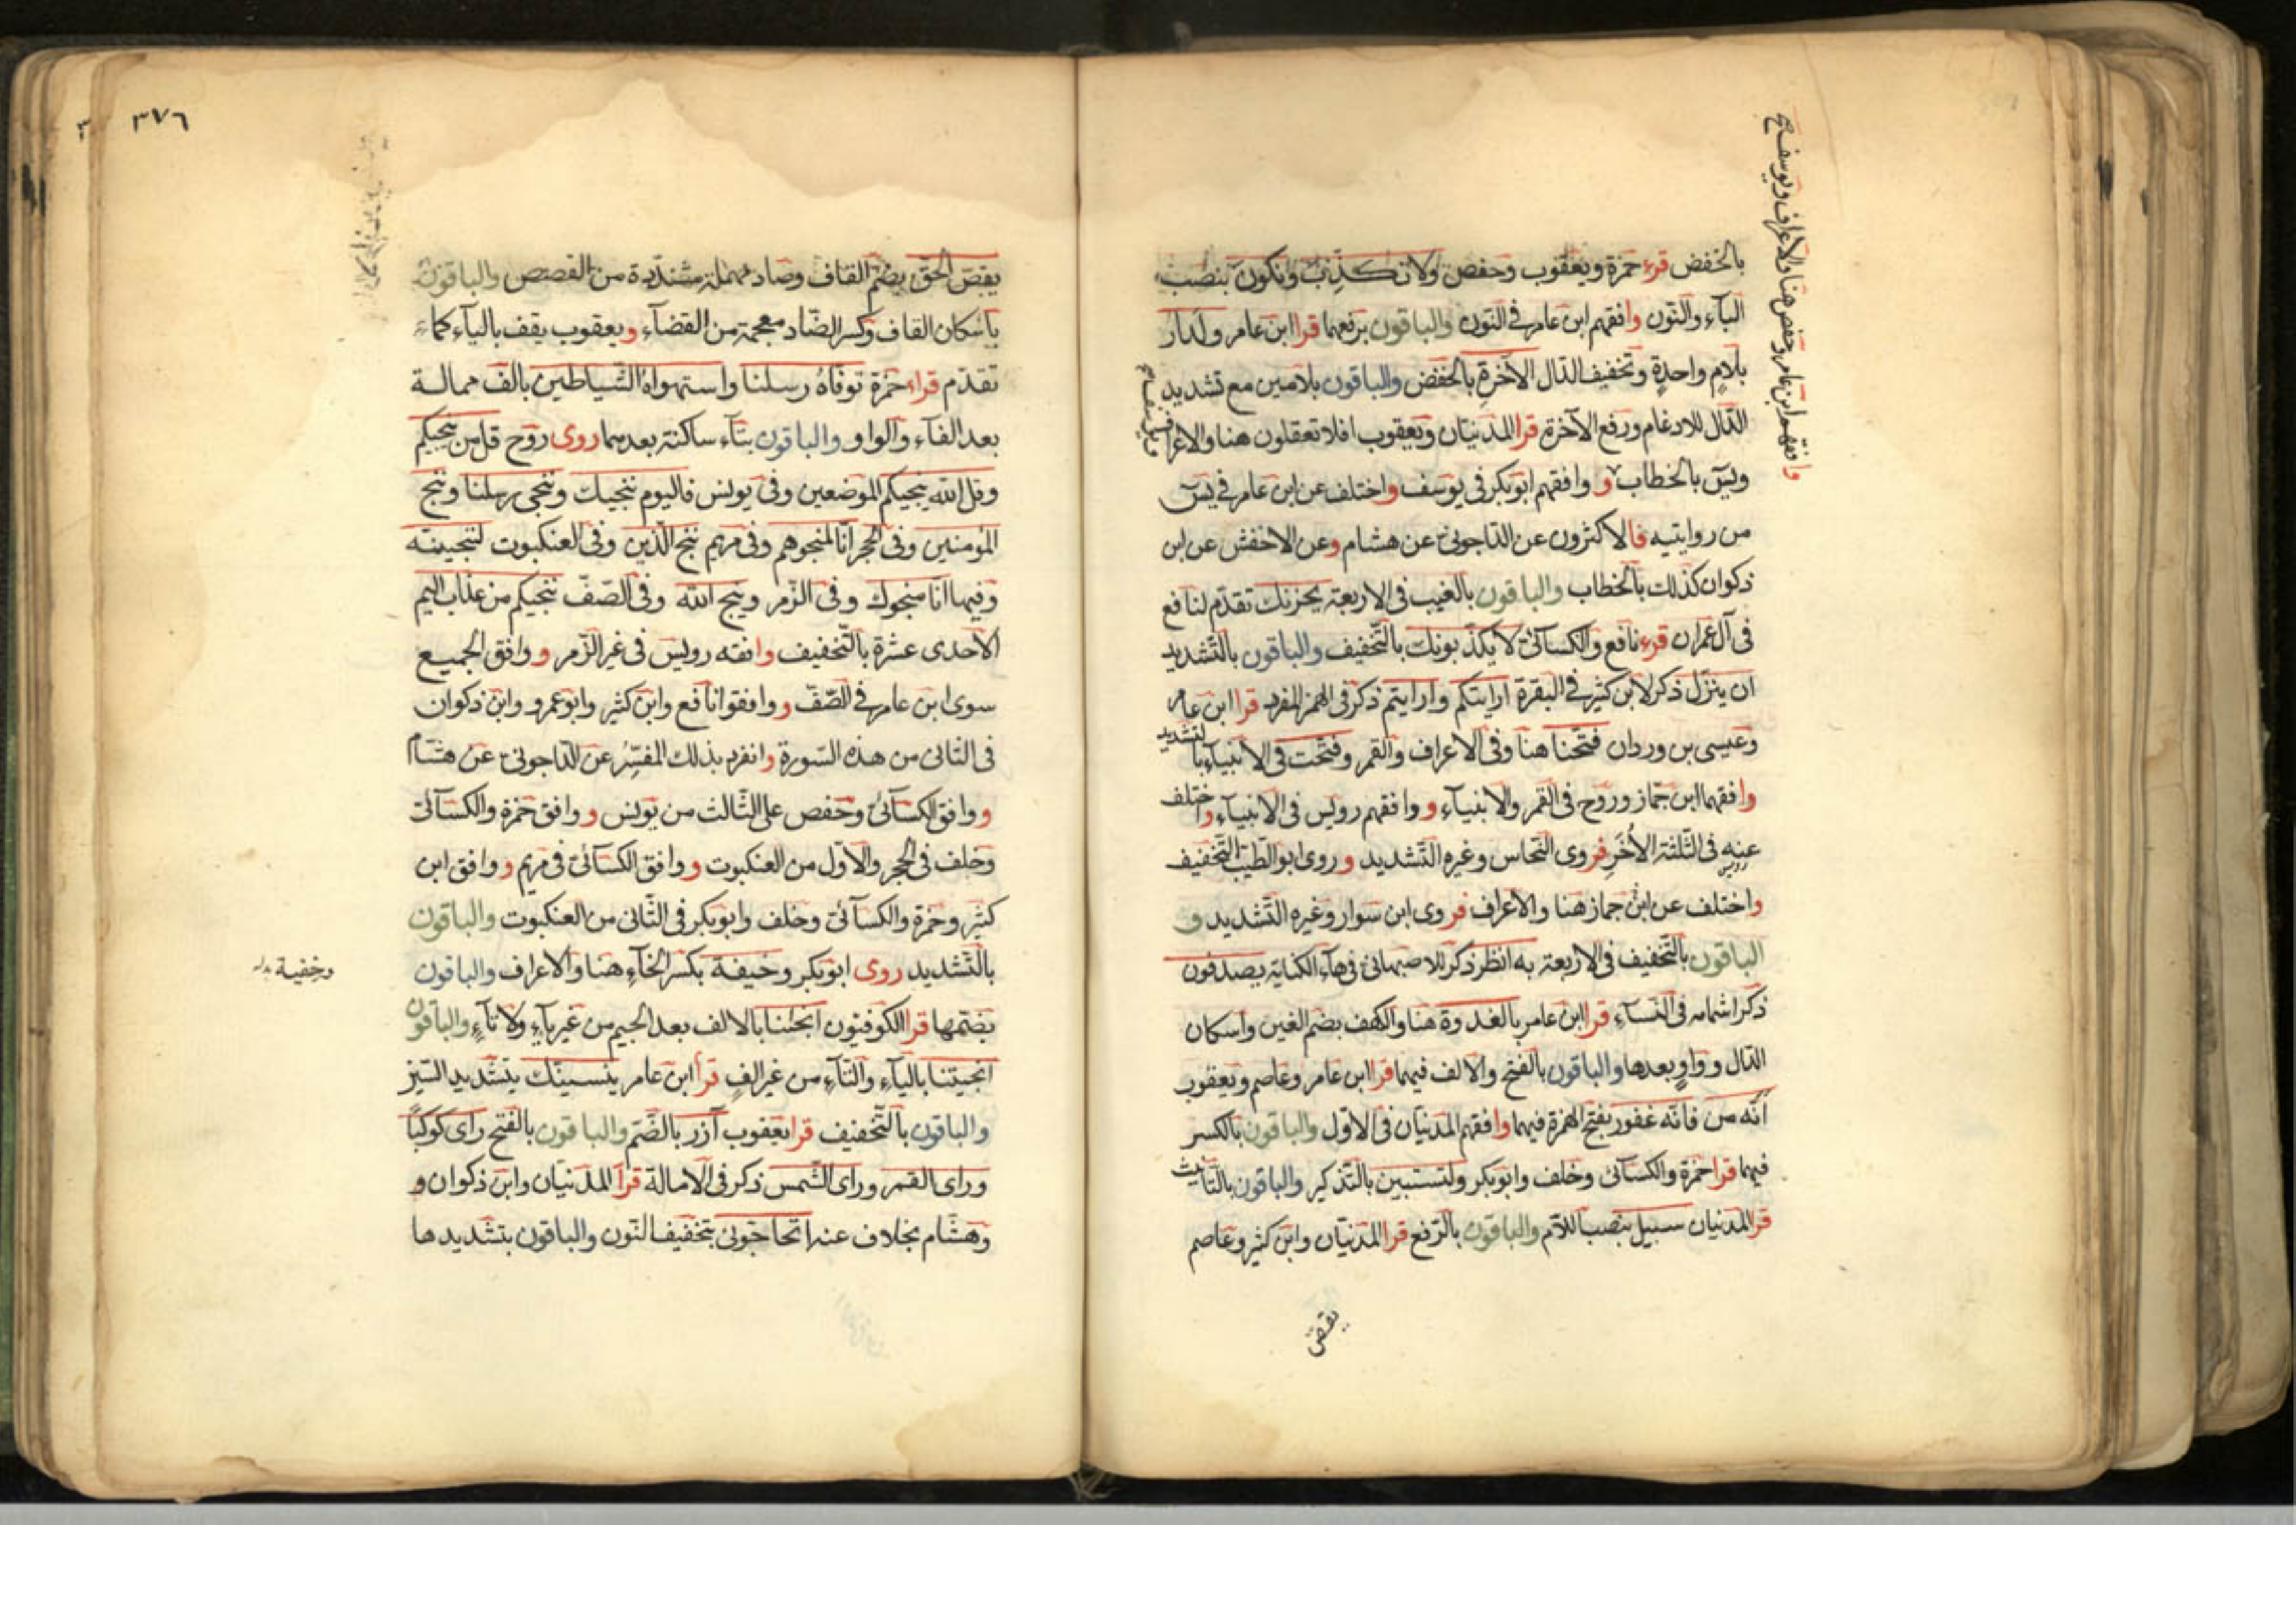 بالخفض قرء حمزة ويعقوب وحفص ولا نكذب ونكون بنصب
الباء والنون وافقهم ابن عامر في النون والباقون برفعهما قرا ابن عامر ولدار
بلام واحدة وتخفيف الدال الآخرة بالخفض والباقون بلامين مع تشديد
الدال للادغام ورفع الآخرة قرا المدنيان ويعقوب افلا تعقلون هنا والاعراف
ويس بالخطاب و وافقهم ابوبكر في يوسف واختلف عن ابن عامر في يس
من روايتيه فالاكثرون عن الداجوني عن هشام وعن الاخفش عن ابن
ذكوان كذلك بالخطاب والباقون بالغيب في الاربعة يحزنك تقدم لنافع
في آل عمران قرء نافع والكسائي لا يكذبونك بالتخفيف والباقون بالتشديد
ان ينزل ذكر لابن كثير في البقرة ارايتكم وارايتم ذكر في الهمز المفرد قرا ابن عامر
وعيسى بن وردان فتحنا هنا وفي الاعراف والقمر وفتحت في الانبياء بالتشديد
وافقهما ابن جماز وروح في القمر والانبياء و وافقهم رويس في الانبياء واختلف
عنه في الثلثة الأخر فروى النحاس وغيره التشديد وروى ابوالطيب التخفيف
رويس
واختلف عن ابن جماز هنا والاعراف فروى ابن سوار وغيره التشديد و
الباقون بالتخفيف في الاربعة به انظر ذكر للاصبهاني في هاء الكناية يصدفون
ذكر اشمامه في النساء قرا ابن عامر بالغدوة هنا والكهف بضم الغين واسكان
الدال وواو بعدها والباقون بالفتح والالف فيهما قرا ابن عامر وعاصم ويعقوب
انه من فانه غفور بفتح الهمزة فيهما وافقهم المدنيان في الاول والباقون بالكسر
فيهما قرا حمزة والكسائي وخلف وابوبكر ولتستبين بالتذكير والباقون بالتانيث
قرا المدنيان سبيل بنصب اللام والباقون بالرفع قرا المدنيان وابن كثير وعاصم
يقص
وافقهم ابن عامر وحفص هنا والاعراف ويوسف صح
٣٧٦
يقص الحق بضم القاف وصاد مهملة مشددة من القصص والباقون
باسكان القاف وكسر الضاد معجمة من القضاء ويعقوب يقف بالياء كما
تقدم قراء حمزة توفاه رسلنا واستهواه الشياطين بالف ممالة
بعد الفاء والواو والباقون بتاء ساكنة بعدهما روى روح قل من ينجيكم
وقل الله ينجيكم الموضعين وفي يونس فاليوم ننجيك وننجي رسلنا وننج
المؤمنين وفي الحجر انا لمنجوهم وفي مريم ننج الذين وفي العنكبوت لننجينه
وفيها انا منجوك وفي الزمر وينج الله وفي الصف ننجيكم من عذاب اليم
الاحدى عشرة بالتخفيف وافقه رويس في غير الزمر و وافق الجميع
سوى ابن عامر في الصف و وافقوا نافع وابن كثير وابوعمرو وابن ذكوان
في الثاني من هذه السورة وانفرد بذلك المفسر عن الداجوني عن هشام
و وافق الكسائي وحفص على الثالث من يونس و وافق حمزة والكسائي
وخلف في الحجر والاول من العنكبوت و وافق الكسائي في مريم و وافق ابن
كثير وحمزة والكسائي وخلف وابوبكر في الثاني من العنكبوت والباقون
بالتشديد روى ابوبكر وخيفة بكسر الخاء هنا والاعراف والباقون
وخفية
بضمها قرا الكوفيون انجينا بالالف بعد الجيم من غير ياء ولا تاء والباقون
انجيتنا بالياء والتاء من غير الف قرأ ابن عامر ينسينك بتشديد السين
والباقون بالتخفيف قرا يعقوب آزر بالضم والباقون بالفتح راى كوكبا
وراى القمر وراى الشمس ذكر في الامالة قرأ المدنيان وابن ذكوان و
وهشام بخلاف عنه اتحاجوني بتخفيف النون والباقون بتشديدها